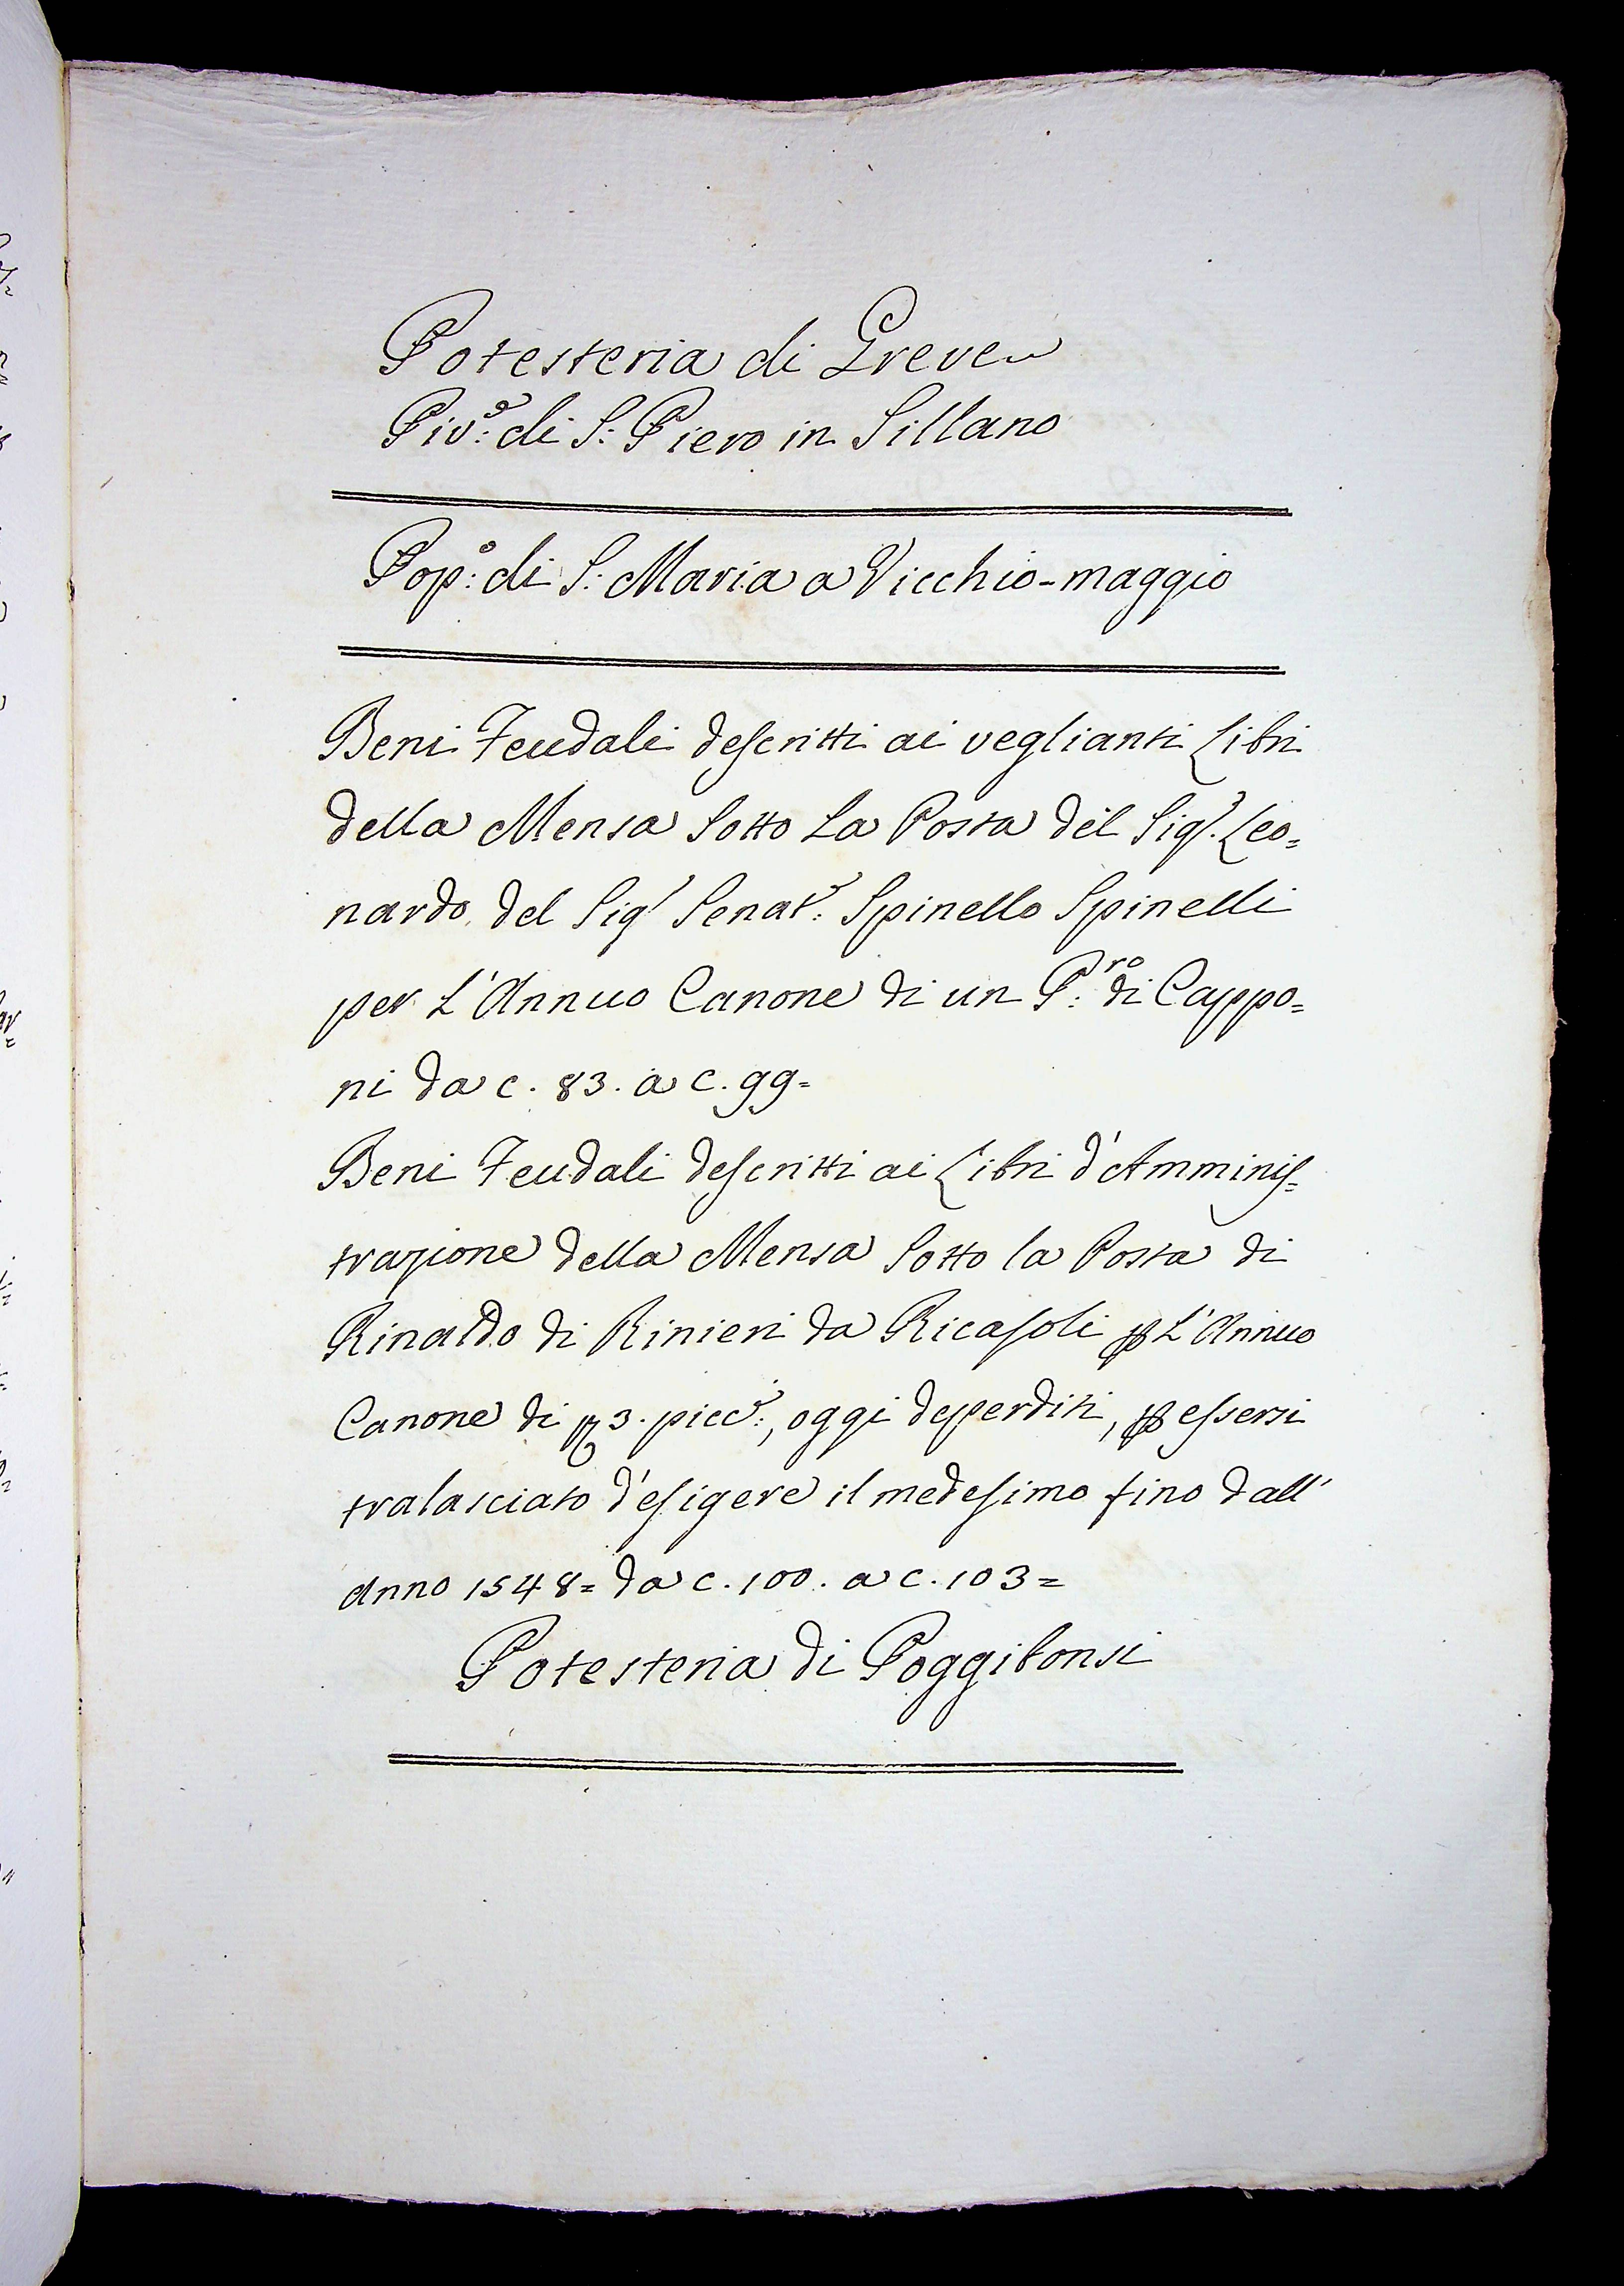 Potesteria di Greve
Piv.e di S: Piero in Sillano
Pop.o di S: Maria a Vicchio-maggio
Beni Feudali descritti ai veglianti Libri
della Mensa Sotto La Posta del Sig.r Leo=
nardo del Sig.r Senat.e Spinello Spinelli
per L'Annuo Canone di un P.ro di Cappo=
ni da c. 83. a c. 99=
Beni Feudali descritti ai Libri d'Amminis=
trazione della Mensa Sotto la Posta di
Rinaldo di Rinieri da Ricasoli p L'Annuo
Canone di 3. picc.i, oggi deperditi, p essersi
tralasciato d'esigere il medesimo fino dall'
Anno 1548= da c. 100. a c. 103=
Potesteria di Poggibonsi